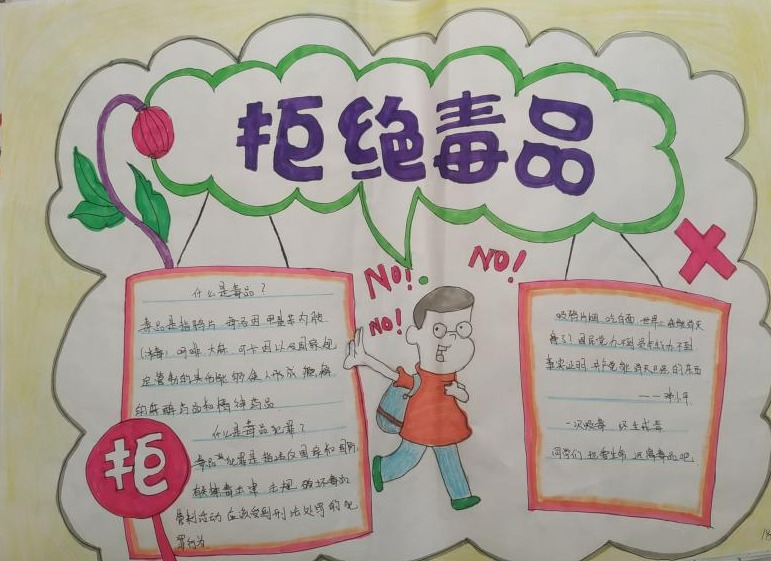 拒绝毒品
NO!
NO!
NO!
什么是毒品？
毒品是指鸦片 海洛因 甲基苯丙胺
(冰毒) 吗啡 大麻 可卡因以及国家规
定管制的其他能够使人形成瘾癖
的麻醉药品和精神药品
什么是毒品犯罪？
毒品犯罪是指违反国家和国际
有关禁毒法律 法规 破坏毒品
管制活动 应该受到刑法处罚的犯
罪行为
拒
吸鸦片烟 吃白面 世界上谁能消灭
得了？国民党办不到 资本主义办不到
事实证明 共产党能消灭丑恶的东西
——邓小平
一次吸毒 终生戒毒
同学们 珍爱生命 远离毒品吧